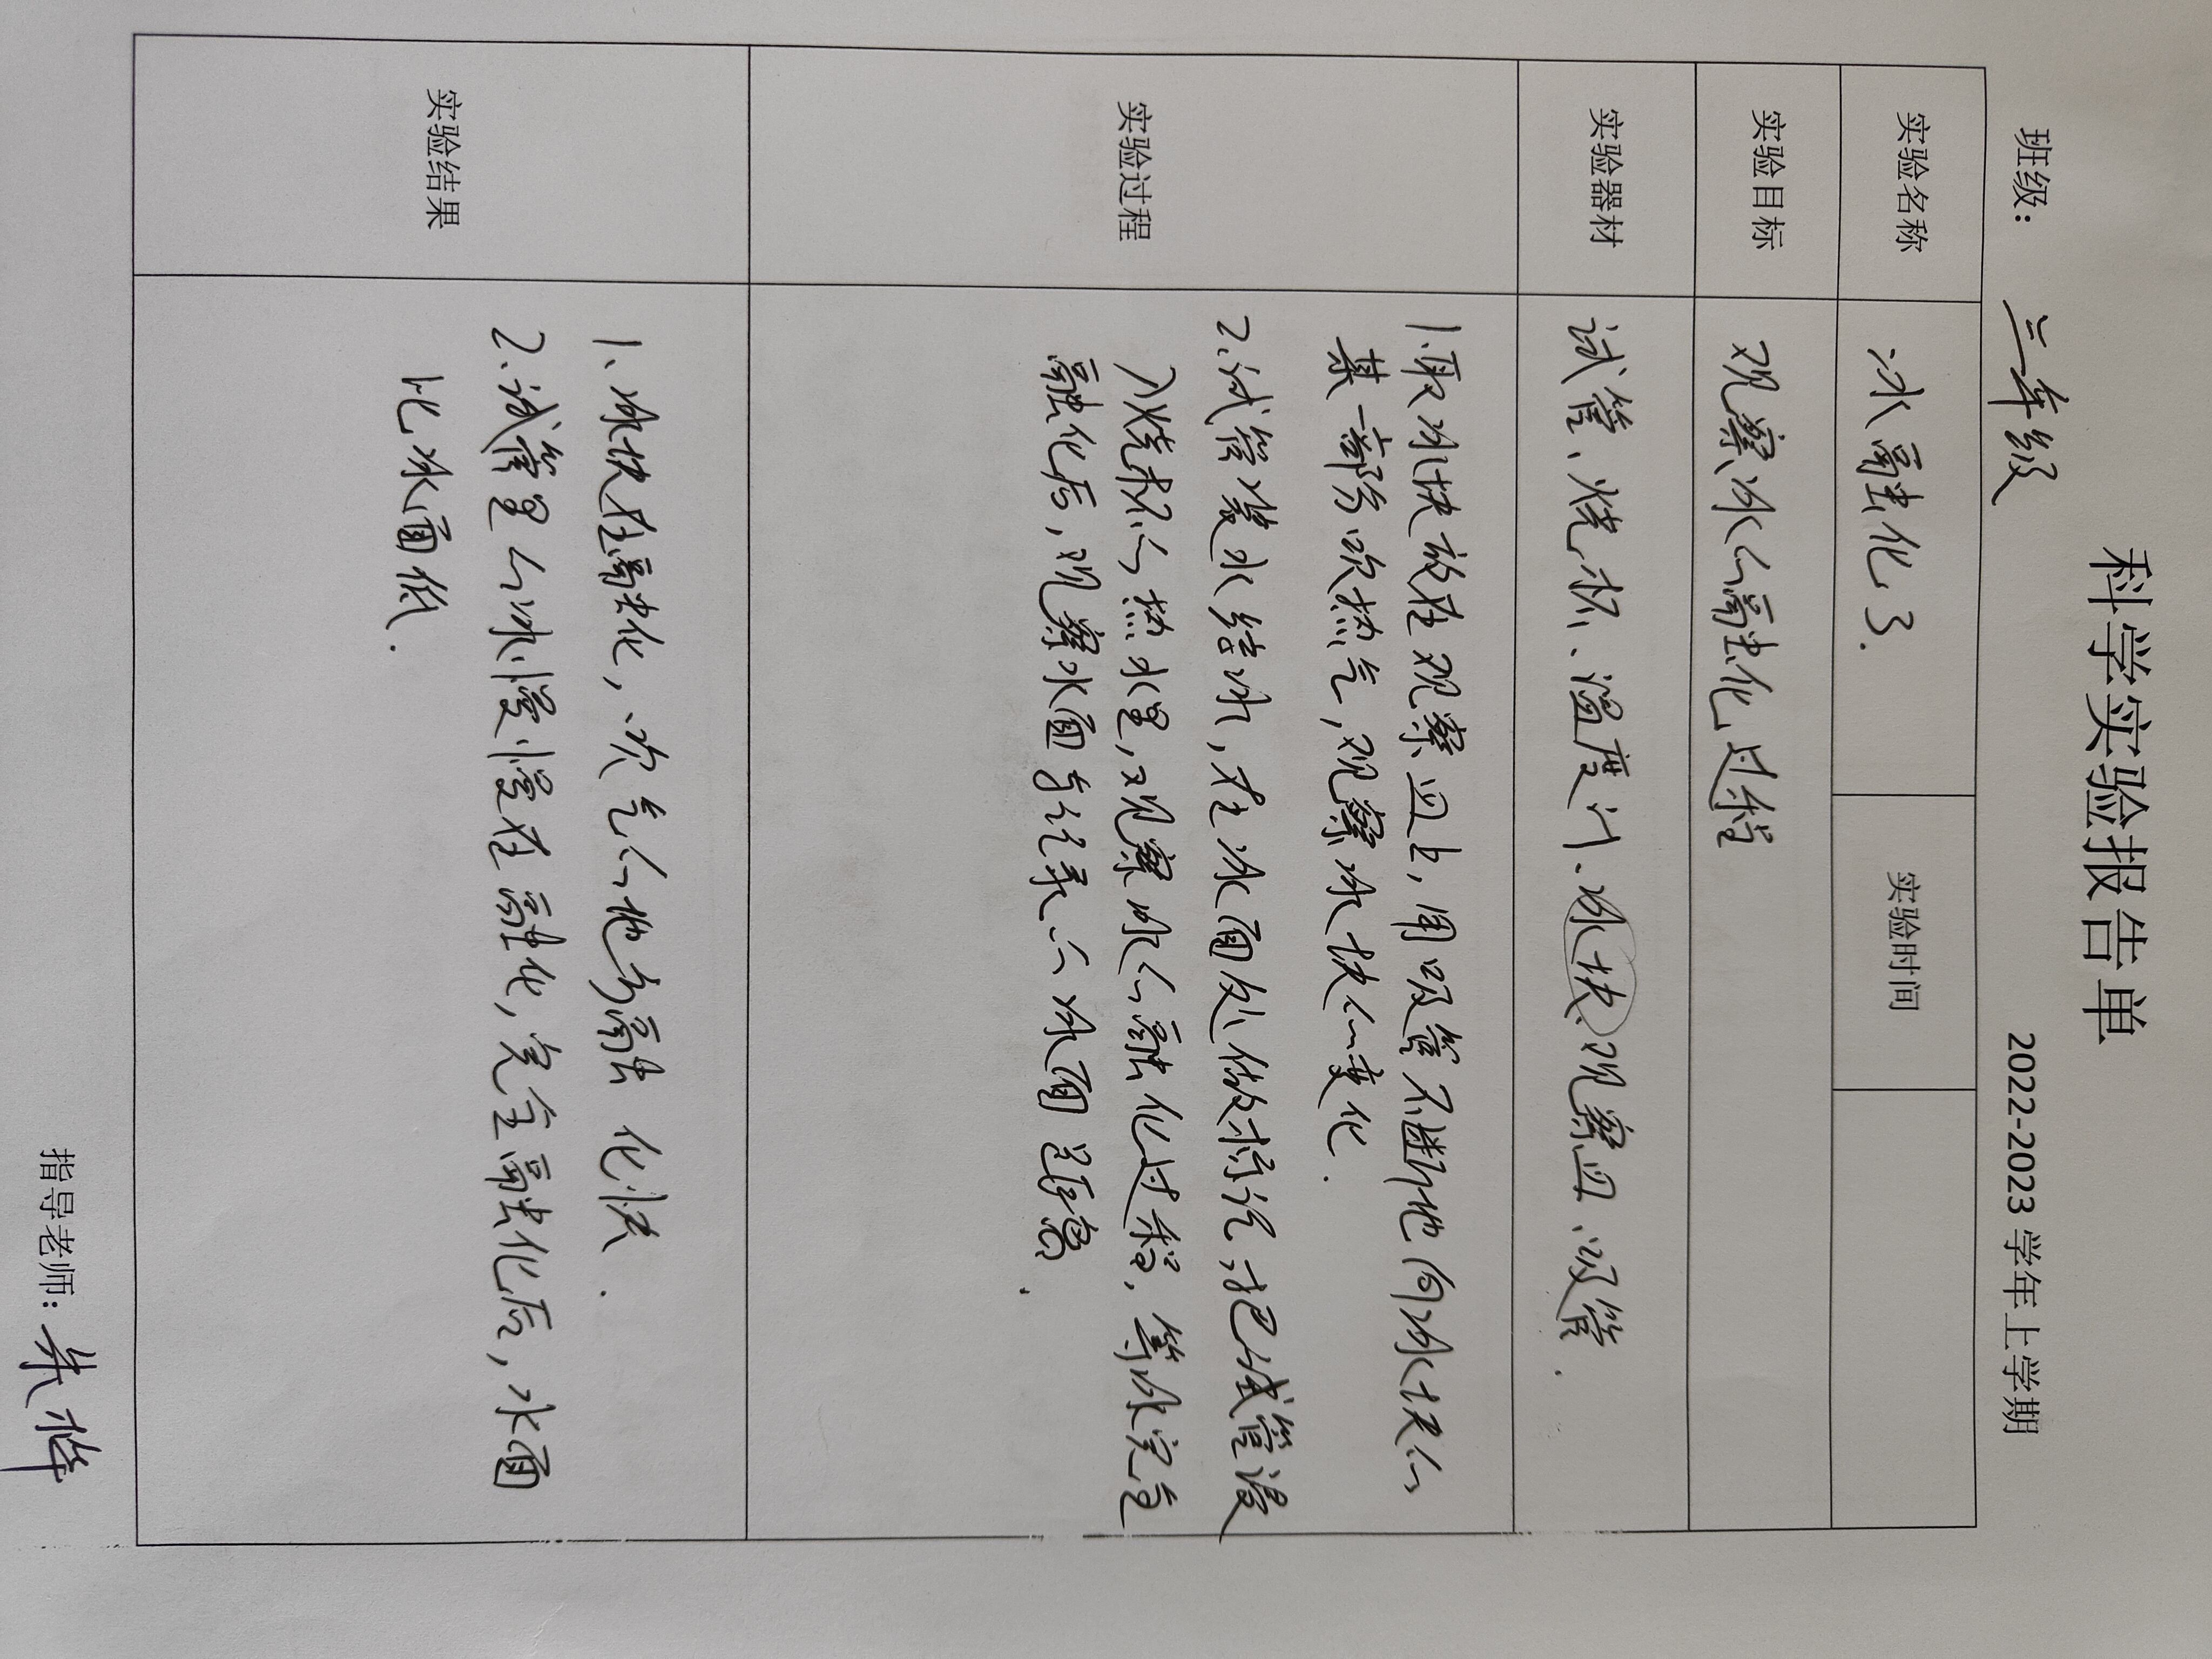 科学实验报告单
班级：三年级 2022-2023 学年上学期
实验名称 冰融化了. 实验时间
实验目标 观察冰的融化过程
实验器材 试管、烧杯、温度计、冰块、观察皿、吸管.
实验过程
1.取冰块放在观察皿上,用吸管不断地向冰块的
某一部分吹热气,观察冰块的变化.
2.试管装水结冰,在冰面处做标记,把试管浸
入烧杯的热水里,观察冰的融化过程,等冰完全
融化后,观察水面与记录的冰面
实验结果
1.冰块在融化,吹气的地方融化快.
2.试管里的冰慢慢在融化,完全融化后,水面
比冰面低.
指导老师：朱桦